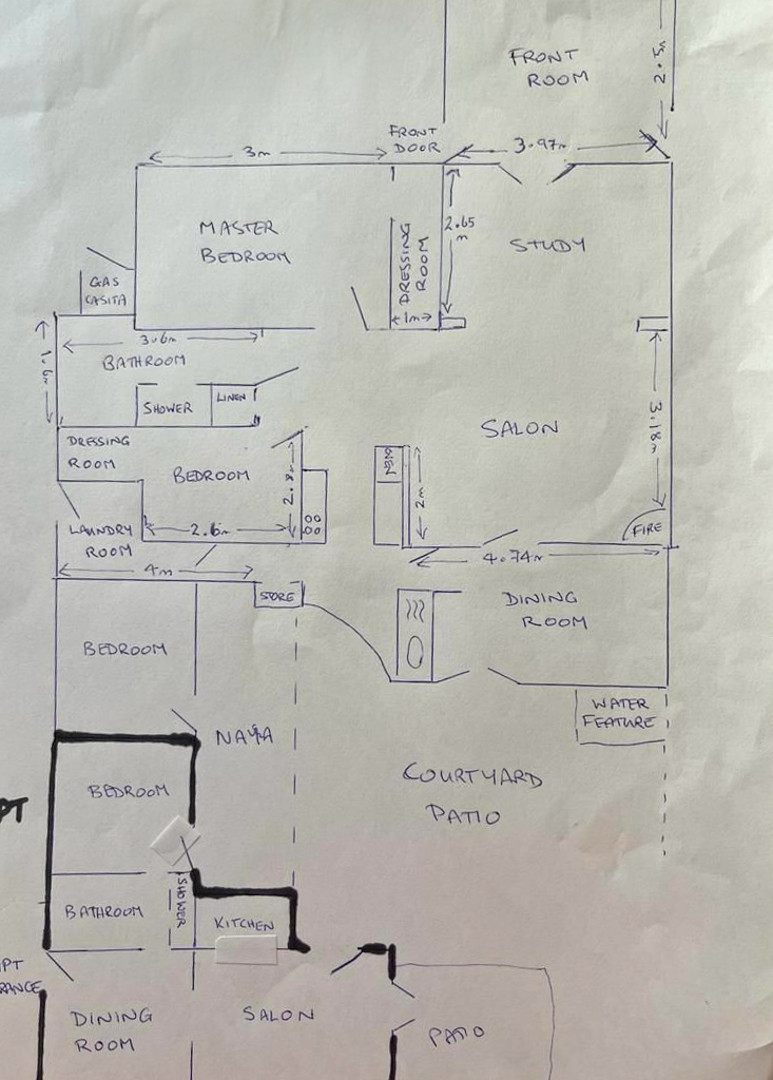 FRONT
ROOM
2.5m
FRONT
DOOR
3m
3.97m
MASTER
BEDROOM
DRESSING
ROOM
2.65
m
STUDY
GAS
CASITA
1m
3.6m
1.6m
BATHROOM
SHOWER
LINEN
3.18m
SALON
DRESSING
ROOM
BEDROOM
2.8m
2m
2.6m
LAUNDRY
ROOM
FIRE
4m
4.74m
STORE
DINING
ROOM
BEDROOM
WATER
FEATURE
NAYA
COURTYARD
PATIO
BEDROOM
PT
SHOWER
BATHROOM
KITCHEN
PT
RANCE
DINING
ROOM
SALON
PATIO